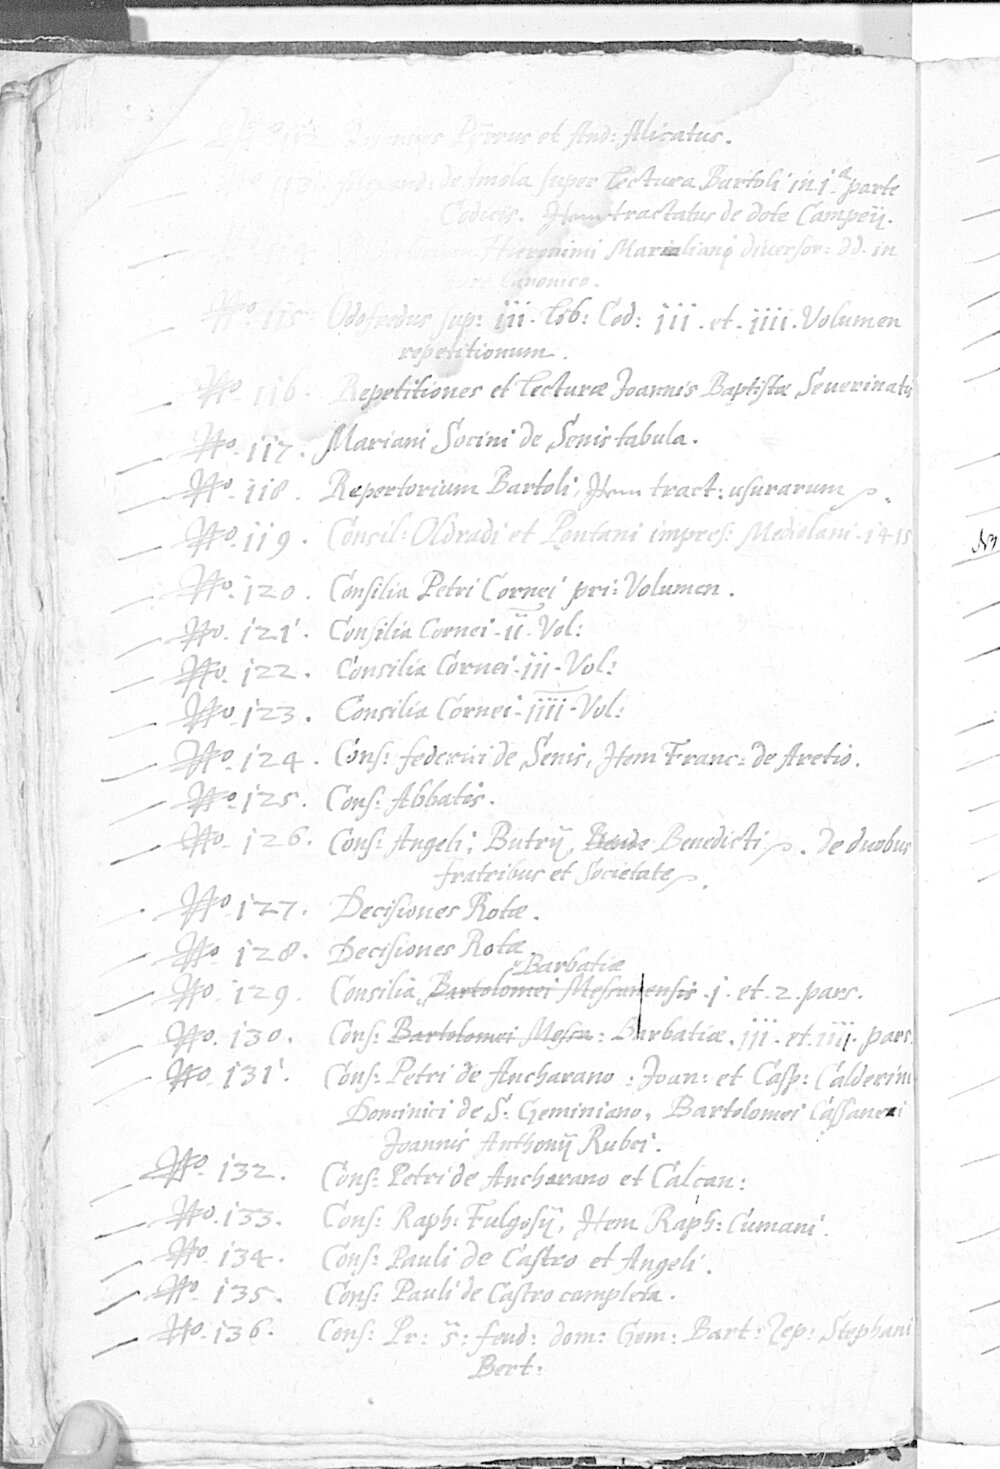 et And: Alicatus.
de Imola super Lectura Bartoli in .j.a parte
Codicis. Item tractatus de dote Campeij.
Hieronimi Mariliani diversor: dd. in
Canonico.
No. 115. Odofredus sup: iii. Lib: Cod: iii. et. iiii. Volumen
repetitionum.
No. 116. Repetitiones et Lecturæ Joannis Baptistæ Severinatis
No. 117. Mariani Socini de Senis tabula.
No. 118. Repertorium Bartoli, Item tract: usurarum
No. 119. Consil: Oldradi et Pontani impres: Mediolani. 1415
No. 120. Consilia Petri Cornei pri: Volumen.
No. 121. Consilia Cornei. ii. Vol:
No. 122. Consilia Cornei. iii. Vol:
No. 123. Consilia Cornei. iiii. Vol:
No. 124. Cons: federici de Senis, Item Franc: de Aretio.
No. 125. Cons: Abbatis.
No. 126. Cons: Angeli, Butrij, Benedicti. De duobus
fratribus et Societate.
No. 127. Decisiones Rotæ.
No. 128. Decisiones Rotæ
Barbatiæ
No. 129. Consilia Bartolomei Messanensis. j. et. 2. pars.
No. 130. Cons: Bartolomei Messa: Barbatiæ. iii. et. iiii. pars.
No. 131. Cons: Petri de Ancharano: Joan: et Casp: Calderini
Dominici de S: Geminiano, Bartolomei Cassanei
Joannis Anthonij Rubei.
No. 132. Cons: Petri de Ancharano et Calcan:
No. 133. Cons: Raph: Fulgosij, Item Raph: Cumani.
No. 134. Cons: Pauli de Castro et Angeli.
No. 135. Cons: Pauli de Castro completa.
No. 136. Cons: Pr: feud: dom: Gem: Bart: Zep: Stephani
Bert: